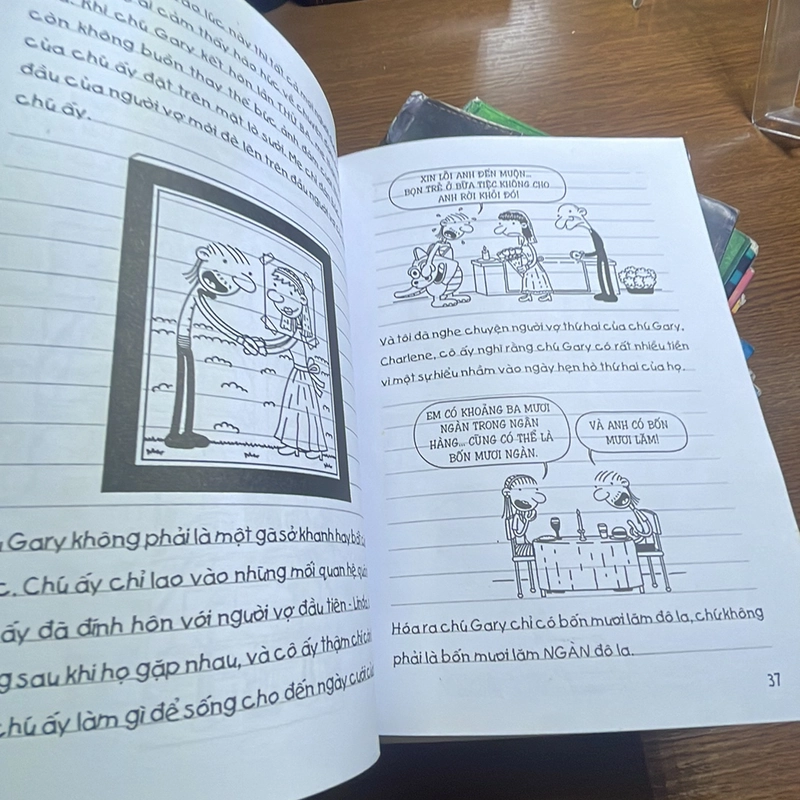 lúc này thì tất cả mọi
cảm thấy háo hức về chuyện
Khi chú Gary kết hôn lần THỨ BA, mẹ
còn không buồn thay thế bức ảnh đám cưới
của chú ấy đặt trên mặt lò sưởi. Mẹ chỉ dán
đầu của người vợ mới đè lên trên đầu người
chú ấy.
Gary không phải là một gã sở khanh hay
Chú ấy chỉ lao vào những mối quan hệ
ấy đã đính hôn với người vợ đầu tiên - Linda
sau khi họ gặp nhau, và cô ấy thậm chí
chú ấy làm gì để sống cho đến ngày cưới
XIN LỖI ANH ĐẾN MUỘN...
BỌN TRẺ Ở BỮA TIỆC KHÔNG CHO
ANH RỜI KHỎI ĐÓ!
Và tôi đã nghe chuyện người vợ thứ hai của chú Gary,
Charlene, cô ấy nghĩ rằng chú Gary có rất nhiều tiền
vì một sự hiểu nhầm vào ngày hẹn hò thứ hai của họ.
EM CÓ KHOẢNG BA MƯƠI
NGÀN TRONG NGÂN
HÀNG... CŨNG CÓ THỂ LÀ
BỐN MƯƠI NGÀN.
VÀ ANH CÓ BỐN
MƯƠI LĂM!
Hóa ra chú Gary chỉ có bốn mươi lăm đô la, chứ không
phải là bốn mươi lăm NGÀN đô la.
37